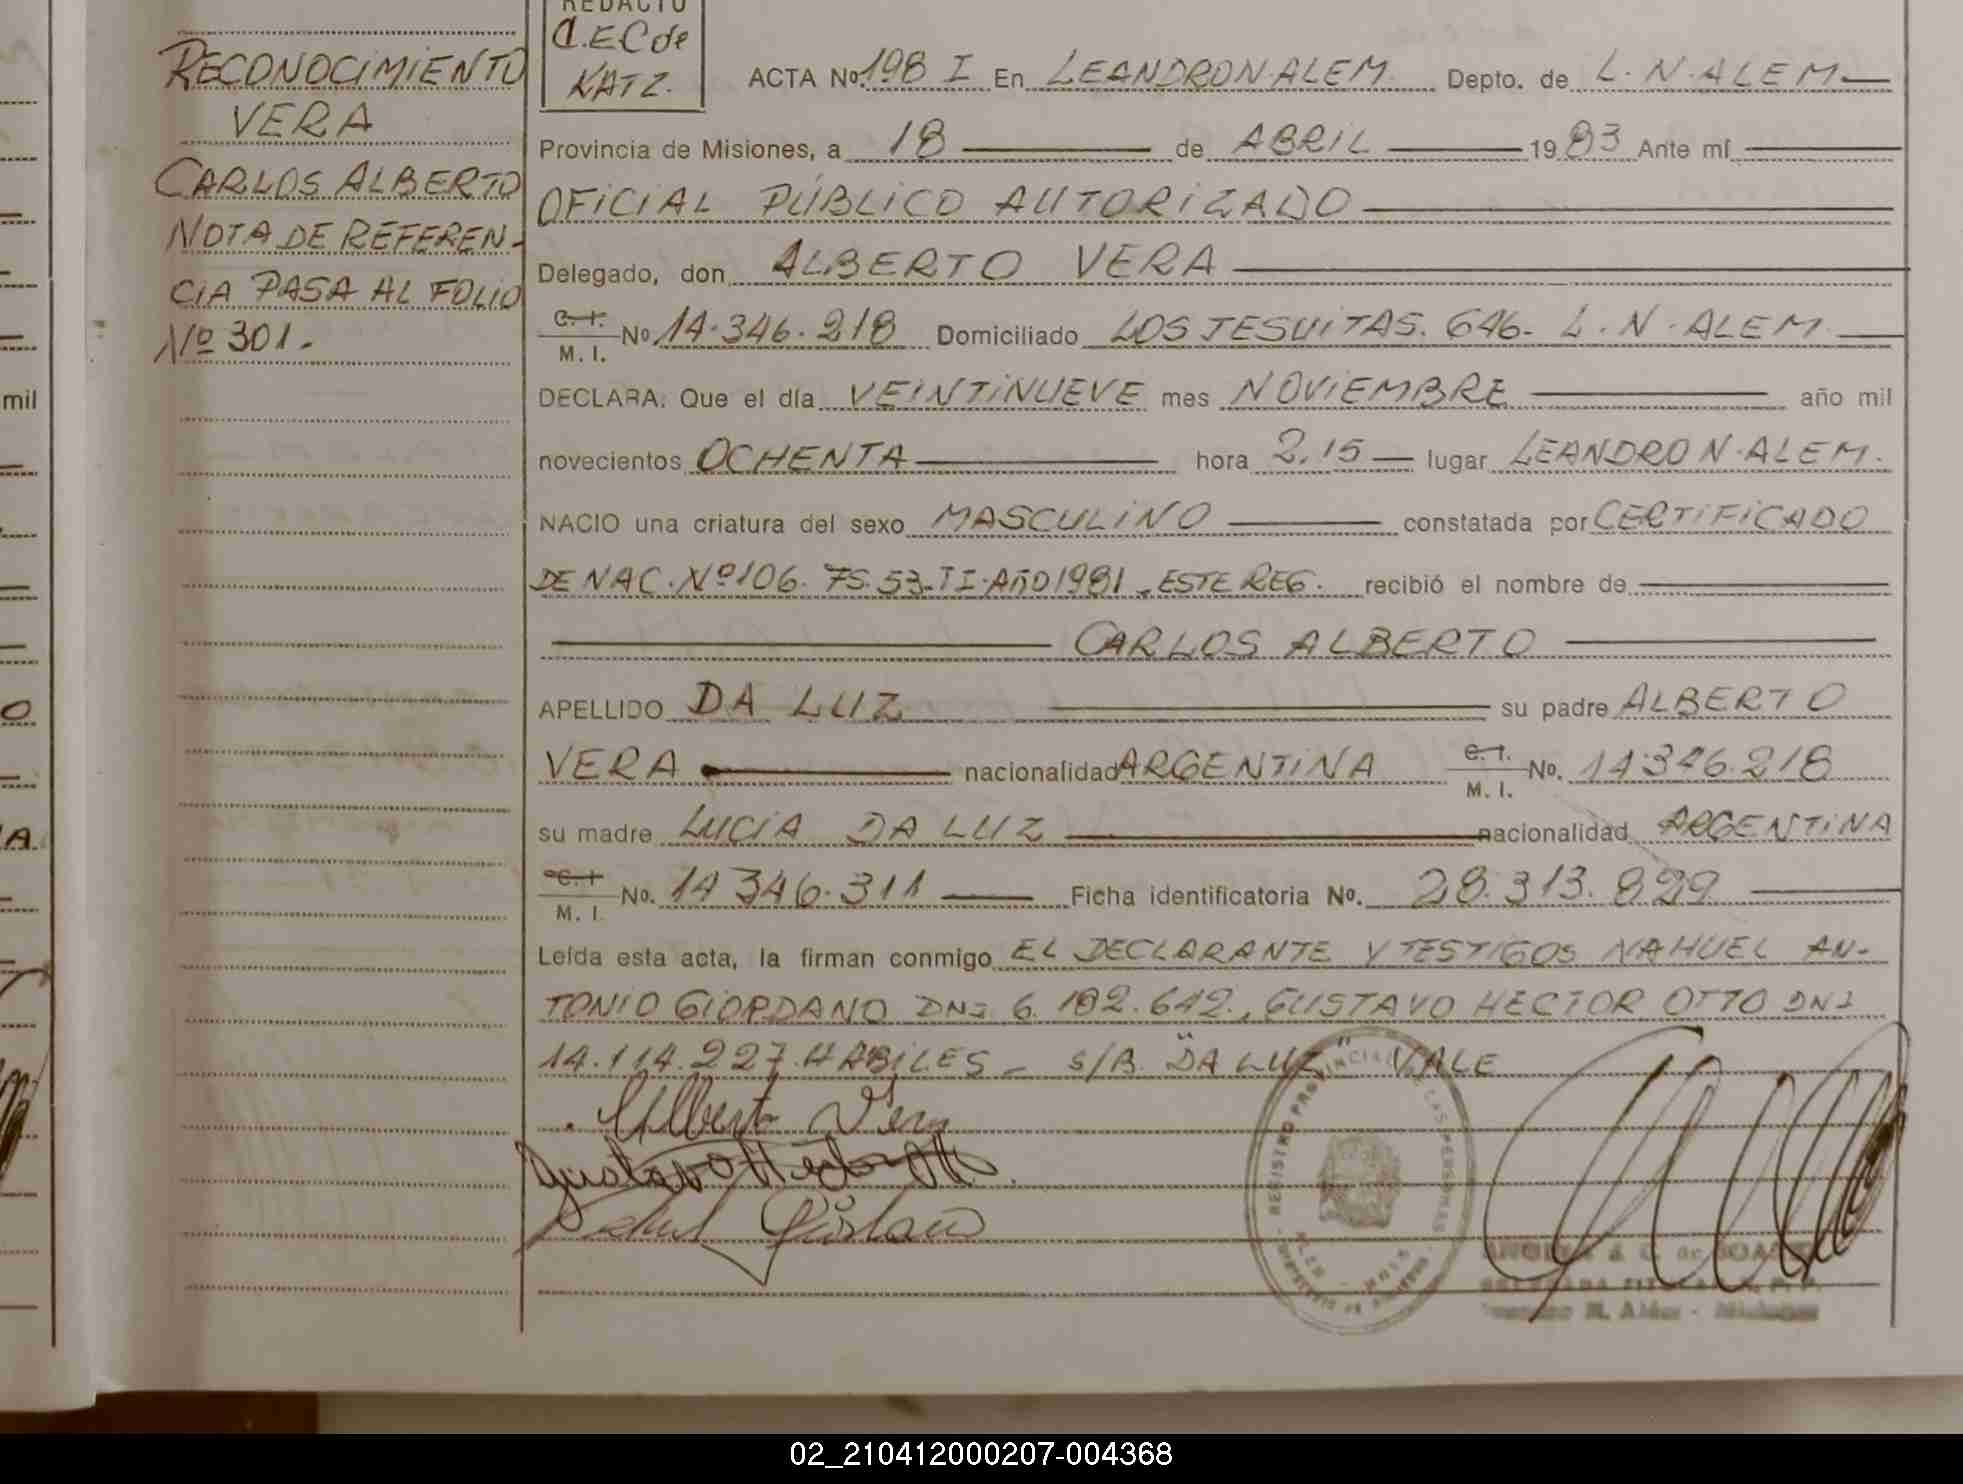 REDACTO
C.E.C de
KATZ.
RECONOCIMIENTO
VERA
CARLOS ALBERTO
NOTA DE REFEREN-
CIA PASA AL FOLIO
Nº 301.-
ACTA Nº 198 I En LEANDRO N. ALEM. Depto. de L. N. ALEM
Provincia de Misiones, a 18 de ABRIL 1983 Ante mí
OFICIAL PÚBLICO AUTORIZADO
Delegado, don ALBERTO VERA
C. I.
M. I. Nº 14.346.218 Domiciliado LOS JESUITAS. 646. L. N. ALEM
DECLARA: Que el día VEINTINUEVE mes NOVIEMBRE año mil
novecientos OCHENTA hora 2,15 lugar LEANDRO N. ALEM.
NACIO una criatura del sexo MASCULINO constatada por CERTIFICADO
DE NAC. Nº 106. FS. 53. TI. AÑO 1981. ESTE REG. recibió el nombre de
CARLOS ALBERTO
APELLIDO DA LUZ su padre ALBERTO
VERA nacionalidad ARGENTINA C. I.
M. I. No. 14.346.218
su madre LUCIA DA LUZ nacionalidad ARGENTINA
C. I
M. I. No. 14 346.311 Ficha identificatoria No. 28.313.829
Leída esta acta, la firman conmigo EL DECLARANTE Y TESTIGOS NAHUEL AN-
TONIO GIORDANO DNI 6.192.642., GUSTAVO HECTOR OTTO DNI
14.114.227. HABILES - S/B. "DA LUZ" VALE
Alberto Vera
Gustavo Hector
REGISTRO PROVINCIAL DE LAS PERSONAS
mil
O
A.
02_210412000207-004368